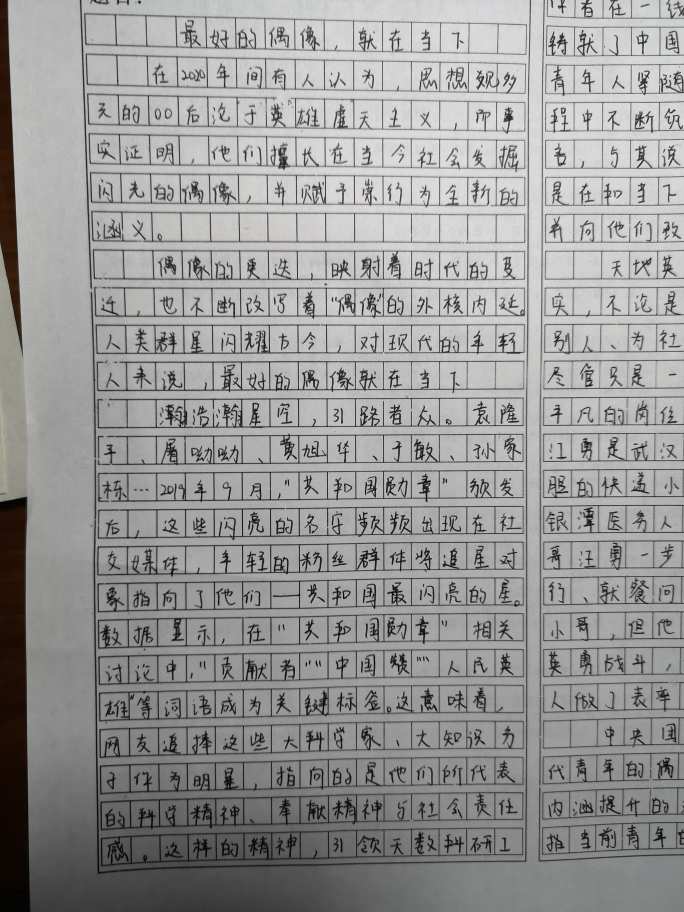 最好的偶像，就在当下
在2020年间有人认为，思想观多
元的00后沦于英雄虚无主义，而事
实证明，他们擅长在当今社会发掘
闪光的偶像，并赋予崇行为全新的
涵义。
偶像的更迭，映射着时代的变
迁，也不断改写着"偶像"的外核内延。
人类群星闪耀古今，对现代的年轻
人来说，最好的偶像就在当下
瀚浩瀚星空，引路者众。袁隆
平、屠呦呦、黄旭华、于敏、孙家
栋…2019年9月，"共和国勋章"颁发
后，这些闪亮的名字频频出现在社
交媒体，年轻的粉丝群体将追星对
象指向了他们——共和国最闪亮的星。
数据显示，在"共和国勋章"相关
讨论中，"贡献者""中国赞""人民英
雄"等词语成为关键标签。这意味着，
网友追捧这些大科学家、大知识分
子作为明星，指向的是他们所代表
的科学精神、奉献精神与社会责任
感。这样的精神，引领无数科研工
者在一线
铸就了中国
青年人紧随
程中不断筑
言，与其说
是在和当下
并向他们致
天地英
实，不论是
别人、为社
尽管只是一
平凡的岗位
江勇是武汉
胆的快递小
银潭医务人
哥汪勇一步
行、就餐问
小哥，但他
英勇战斗，
人做了表率
中央国
代青年的偶
内涵提升的
指当前青年的